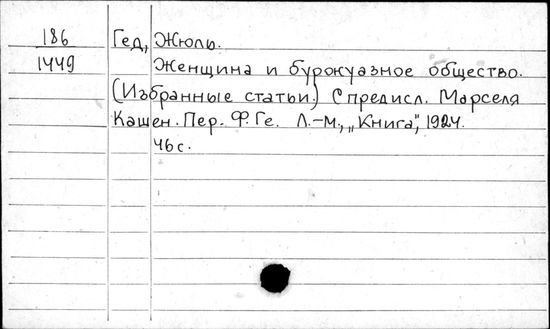 186
1449
Гед, Жюль.
Женщина и буржуазное общество.
(Избранные статьи.) С предисл. Марселя
Кашен. Пер. Ф. Ге. Л.-М., „Книга", 1924.
46 с.